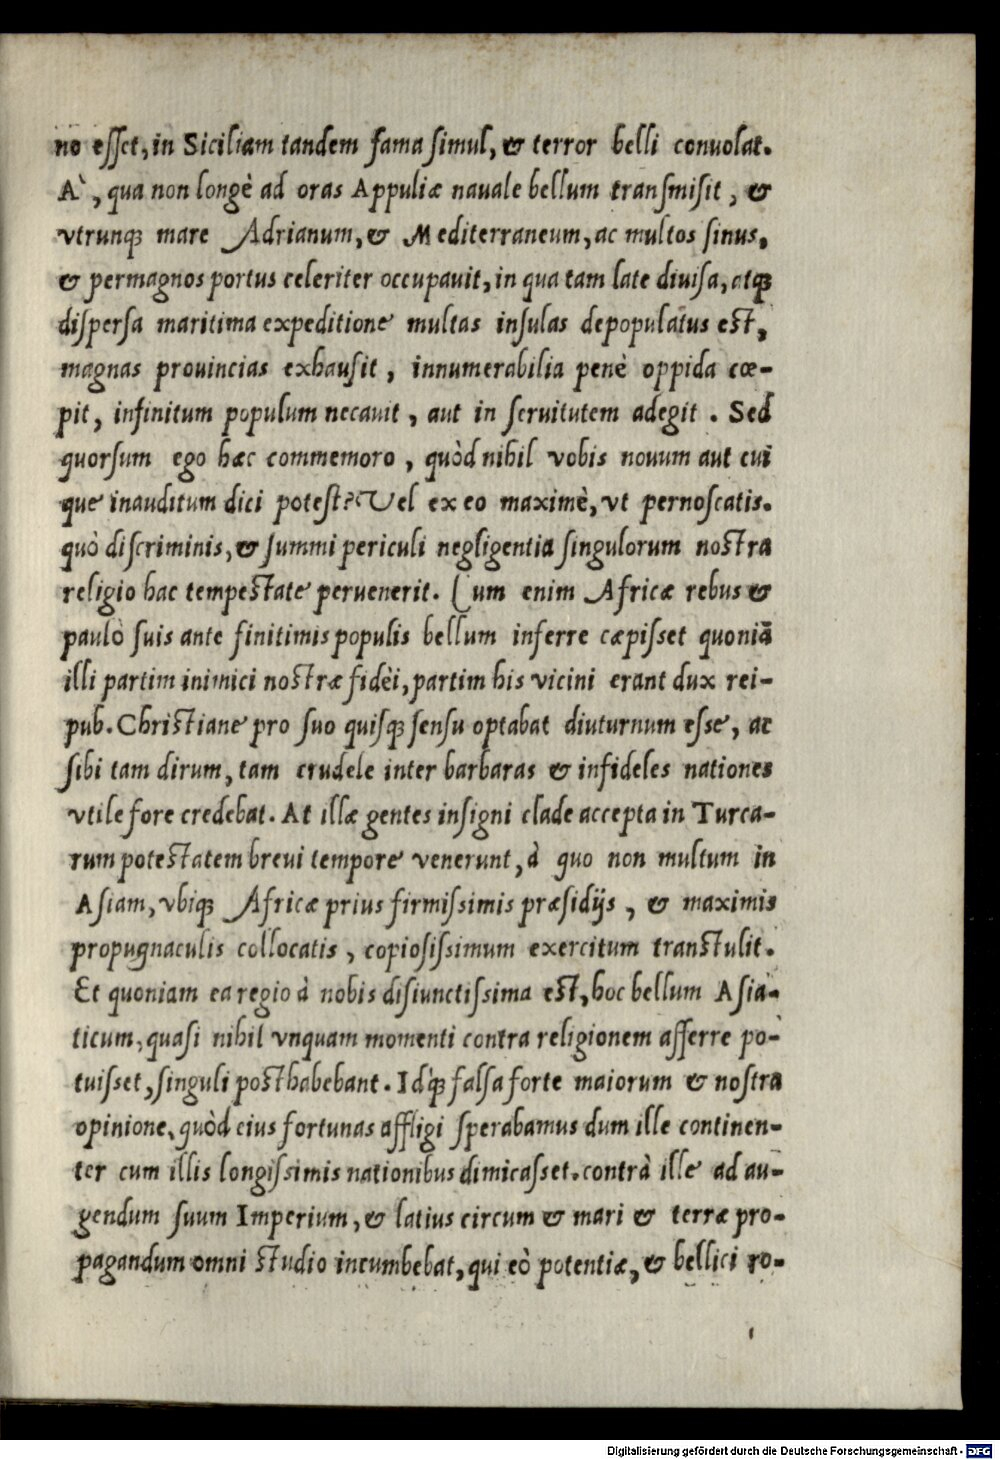 no esset, in Siciliam tandem fama simul, & terror belli conuolat.
A`, qua non longè ad oras Appuliæ nauale bellum transmisit, &
vtrunq; mare Adrianum, & Mediterraneum, ac multos sinus,
& permagnos portus celeriter occupauit, in qua tam late diuisa, atq;
dispersa maritima expeditione multas insulas depopulatus est,
magnas prouincias exhausit, innumerabilia penè oppida cœ-
pit, infinitum populum necauit, aut in seruitutem adegit. Sed
quorsum ego hæc commemoro, quòd nihil vobis nouum aut cui
que inauditum dici potest? Vel ex eo maximè, vt pernoscatis.
quò discriminis, & summi periculi negligentia singulorum nostra
religio hac tempestate peruenerit. Cum enim Africæ rebus &
paulò suis ante finitimis populis bellum inferre cæpisset quoniã
illi partim inimici nostræ fidèi, partim his vicini erant dux rei-
pub. Christiane pro suo quisq; sensu optabat diuturnum esse, ac
sibi tam dirum, tam crudele inter barbaras & infideles nationes
vtile fore credebat. At illæ gentes insigni clade accepta in Turca-
rum potestatem breui tempore venerunt, à quo non multum in
Asiam, vbiq; Africæ prius firmissimis præsidijs, & maximis
propugnaculis collocatis, copiosissimum exercitum transtulit.
Et quoniam ea regio à nobis disiunctissima est, hoc bellum Asia-
ticum, quasi nihil vnquam momenti contra religionem afferre po-
tuisset, singuli posthabebant. Idq; falsa forte maiorum & nostra
opinione, quòd eius fortunas affligi sperabamus dum ille continen-
ter cum illis longissimis nationibus dimicasset. contrà ille ad au-
gendum suum Imperium, & latius circum & mari & terræ pro-
pagandum omni studio incumbebat, qui eò potentiæ, & bellici ro-
Digitalisierung gefördert durch die Deutsche Forschungsgemeinschaft - DFG